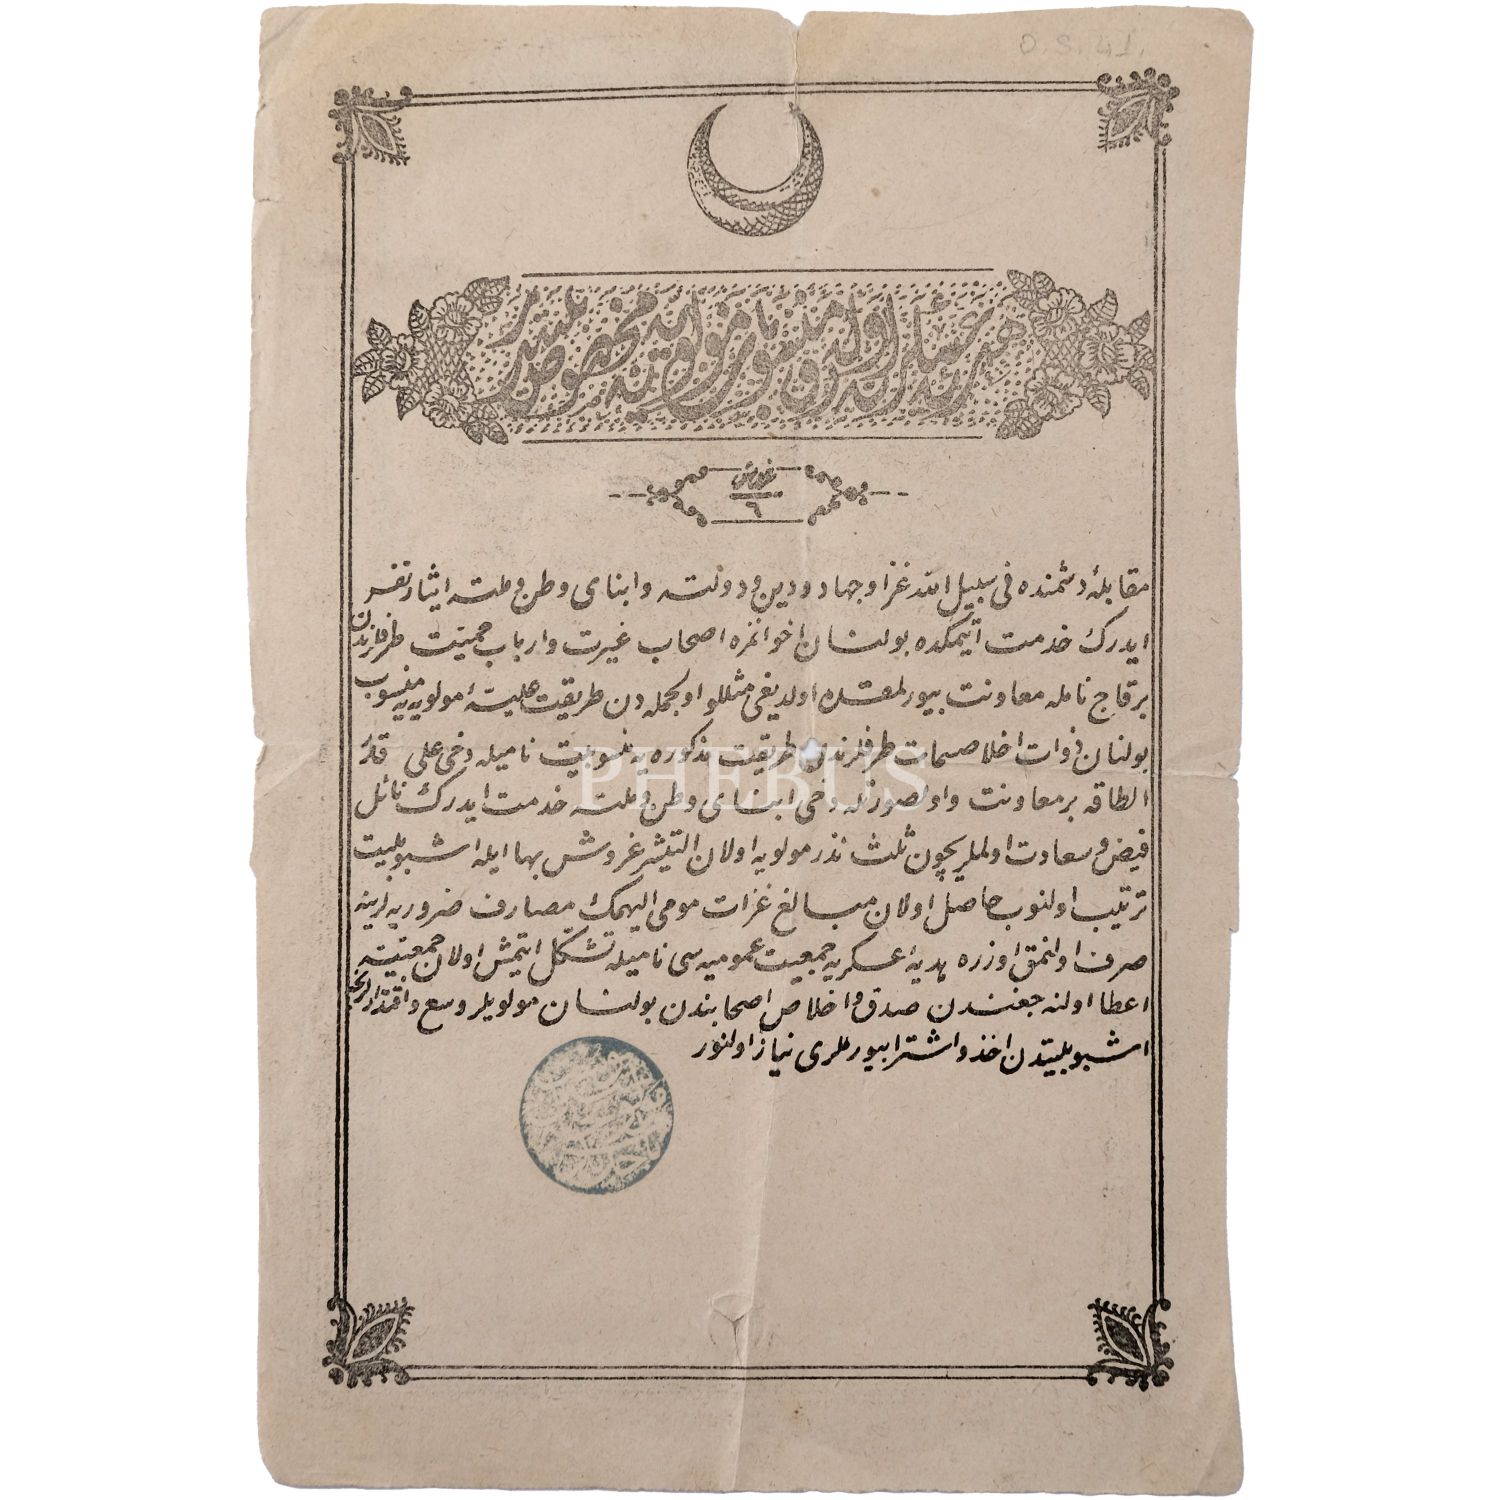 O.S.41.
هديۀ عسكريه اولان منسوبان مولويه مخصوص بليتدر
غروش
٦
مقابلۀ دشمنده فی سبیل الله غزا و جهاد و دین و دولته و ابنای وطن و ملته ایثار نفس
ایدرك خدمت ایتمكده بولنان اخوانمزه اصحاب غیرت و ارباب حمیت طرفلرندن
برقاچ نامله معاونت بیورلمقده اولدیغی مثللو اوجمله دن طریقت علیۀ مولویه یه منسوب
بولنان ذوات اخلاصسمات طرفلرندن طریقت مذكوره یه منسوبیت نامیله دخی علی قدر
الطاقه بر معاونت و اولصورتله دخی ابنای وطن و ملته خدمت ایدرك نائل
فیض و سعادت اولملریچون ثلث نذر مولویه اولان التیشر غروش بها ایله اشبو بلیت
ترتیب اولنوب حاصل اولان مبالغ غزات مومی الیهمك مصارف ضروریه لرینه
صرف اولنمق اوزره هدیۀ عسكریه جمعیت عمومیه سی نامیله تشكل ایتمش اولان جمعیته
اعطا اولنه جغندن صدق و اخلاص اصحابندن بولنان مولویلر وسع و اقتدارلرنجه
اشبو بلیتدن اخذ و اشترا بیورملری نیاز اولنور
PHEBUS